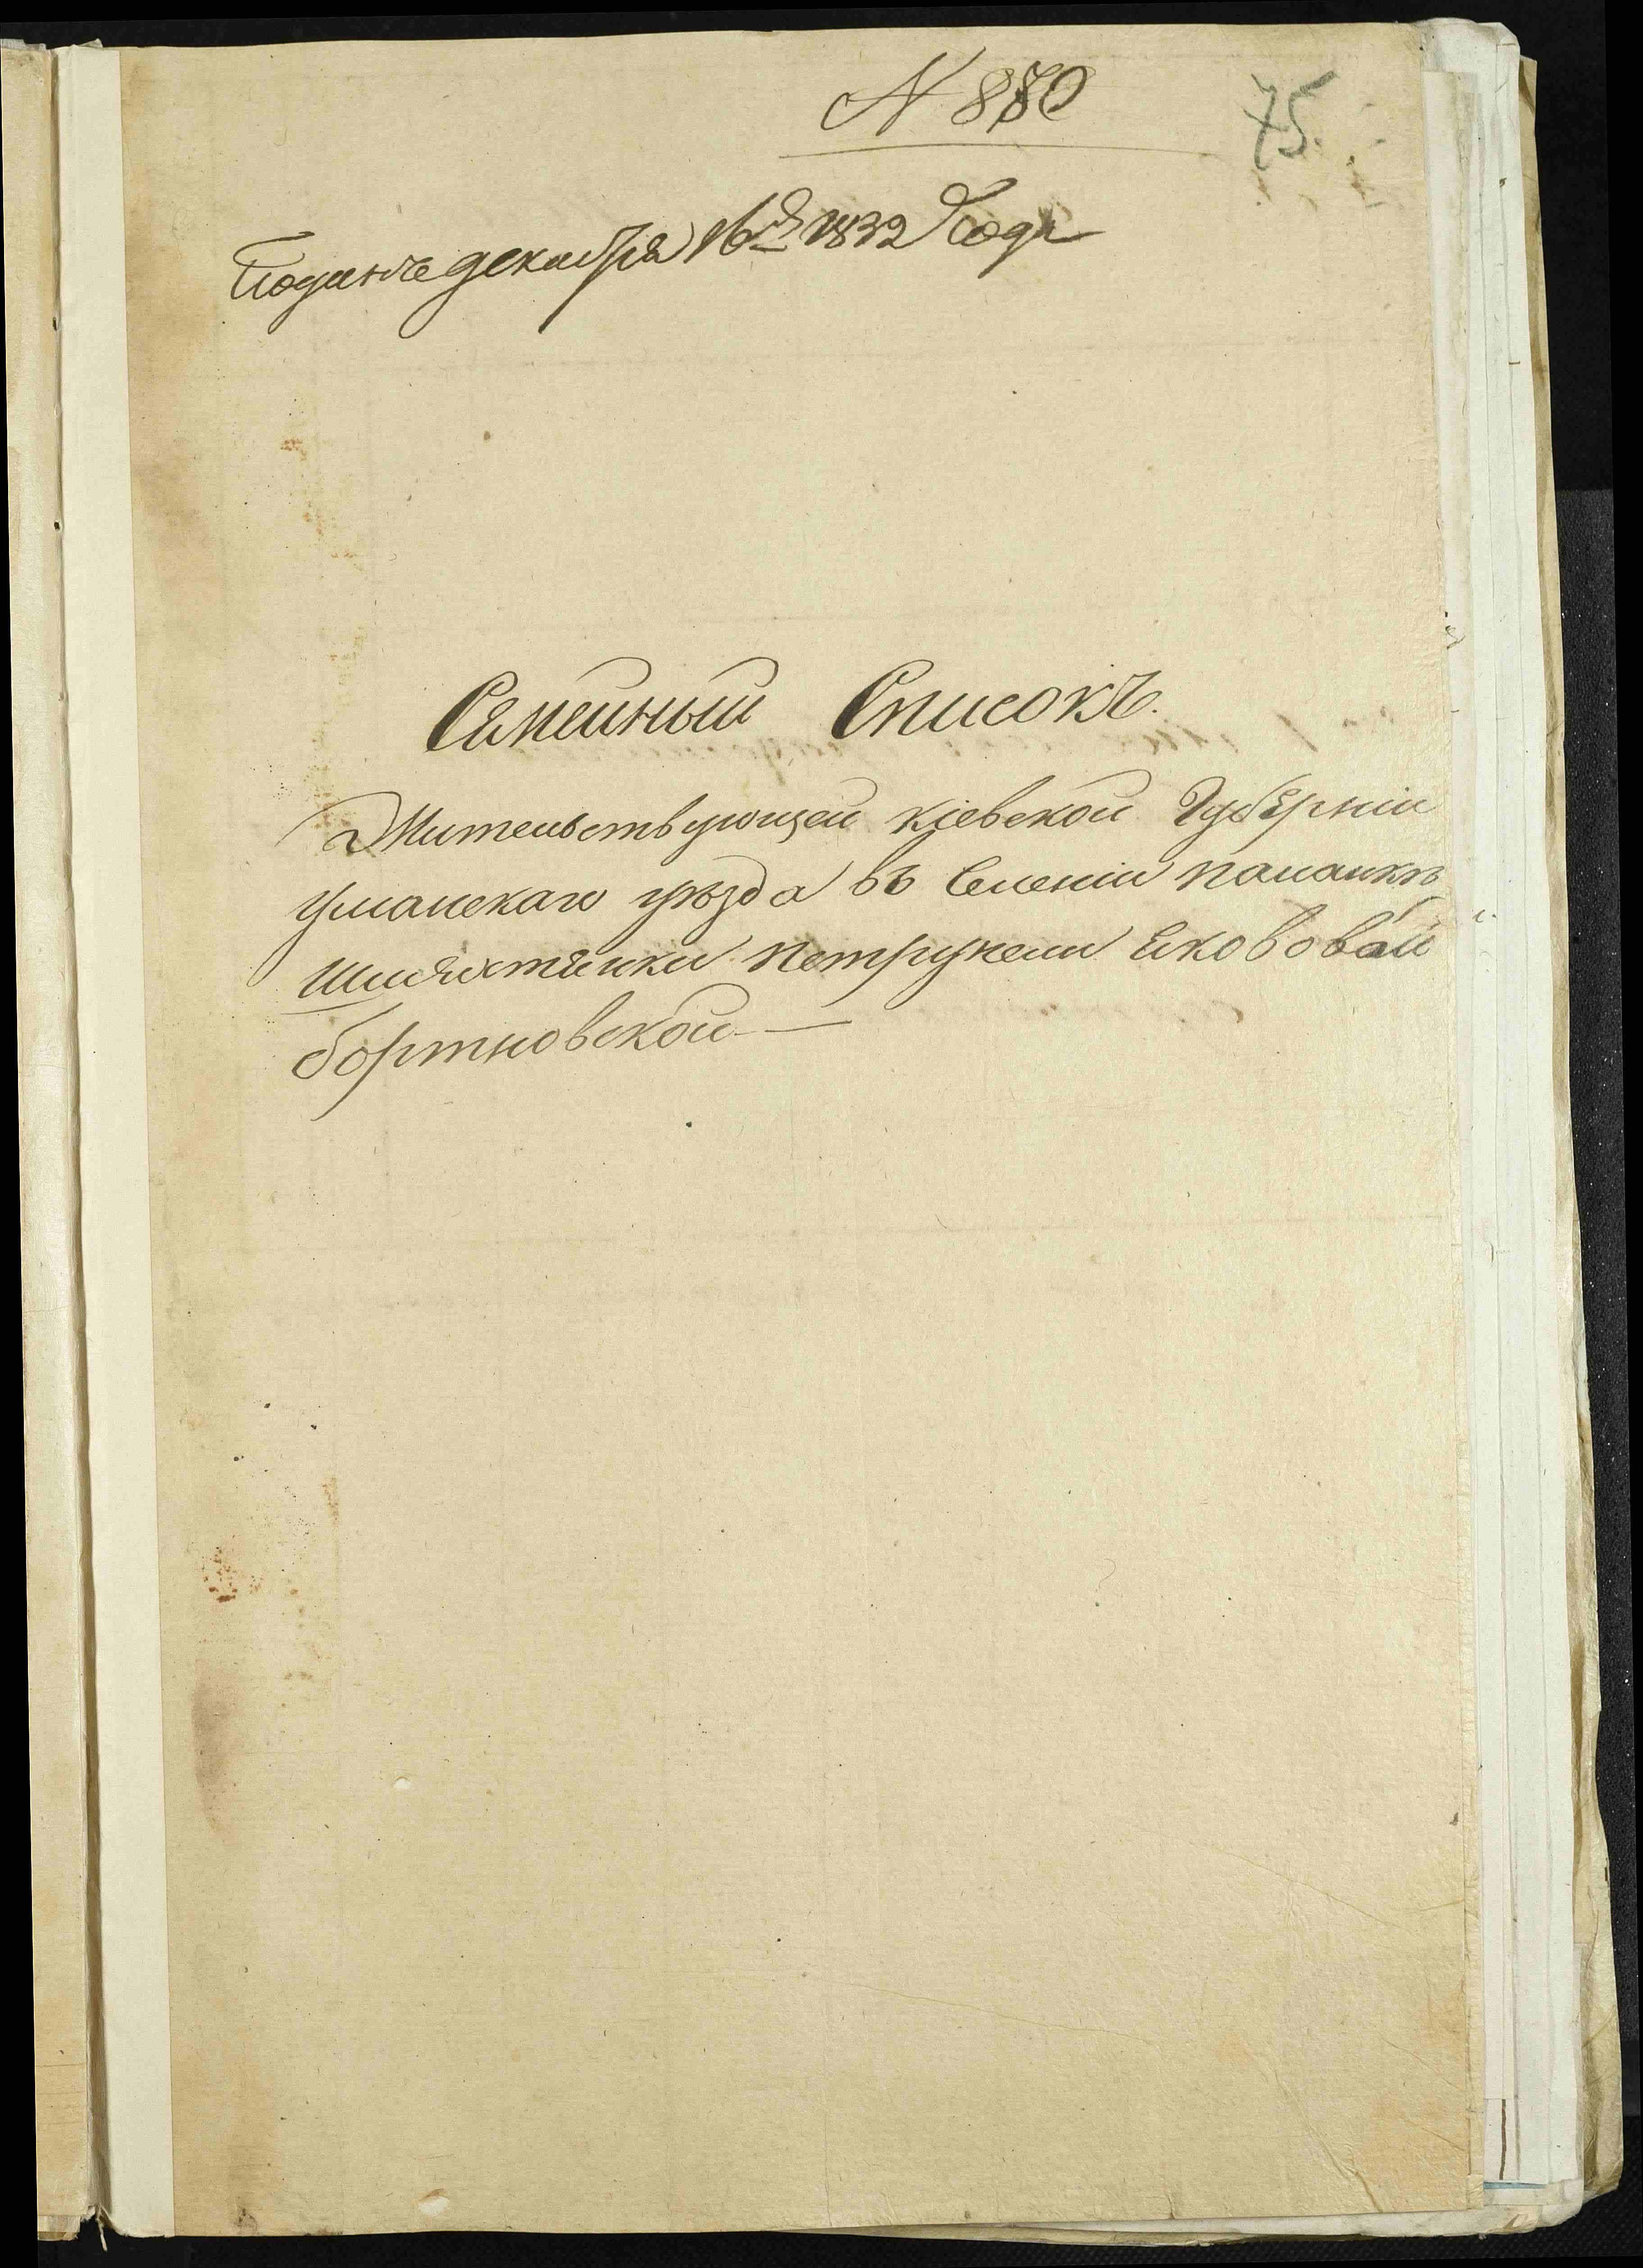 N 880
75.
Поданъ декабря 16го 1832 Года
Семейный Списокъ.
Жительствующей кіевской Губерніи
уманскаго уѣзда въ Селеніи паланкѣ
шляхтянки Петрунели Яковової
бортновской —